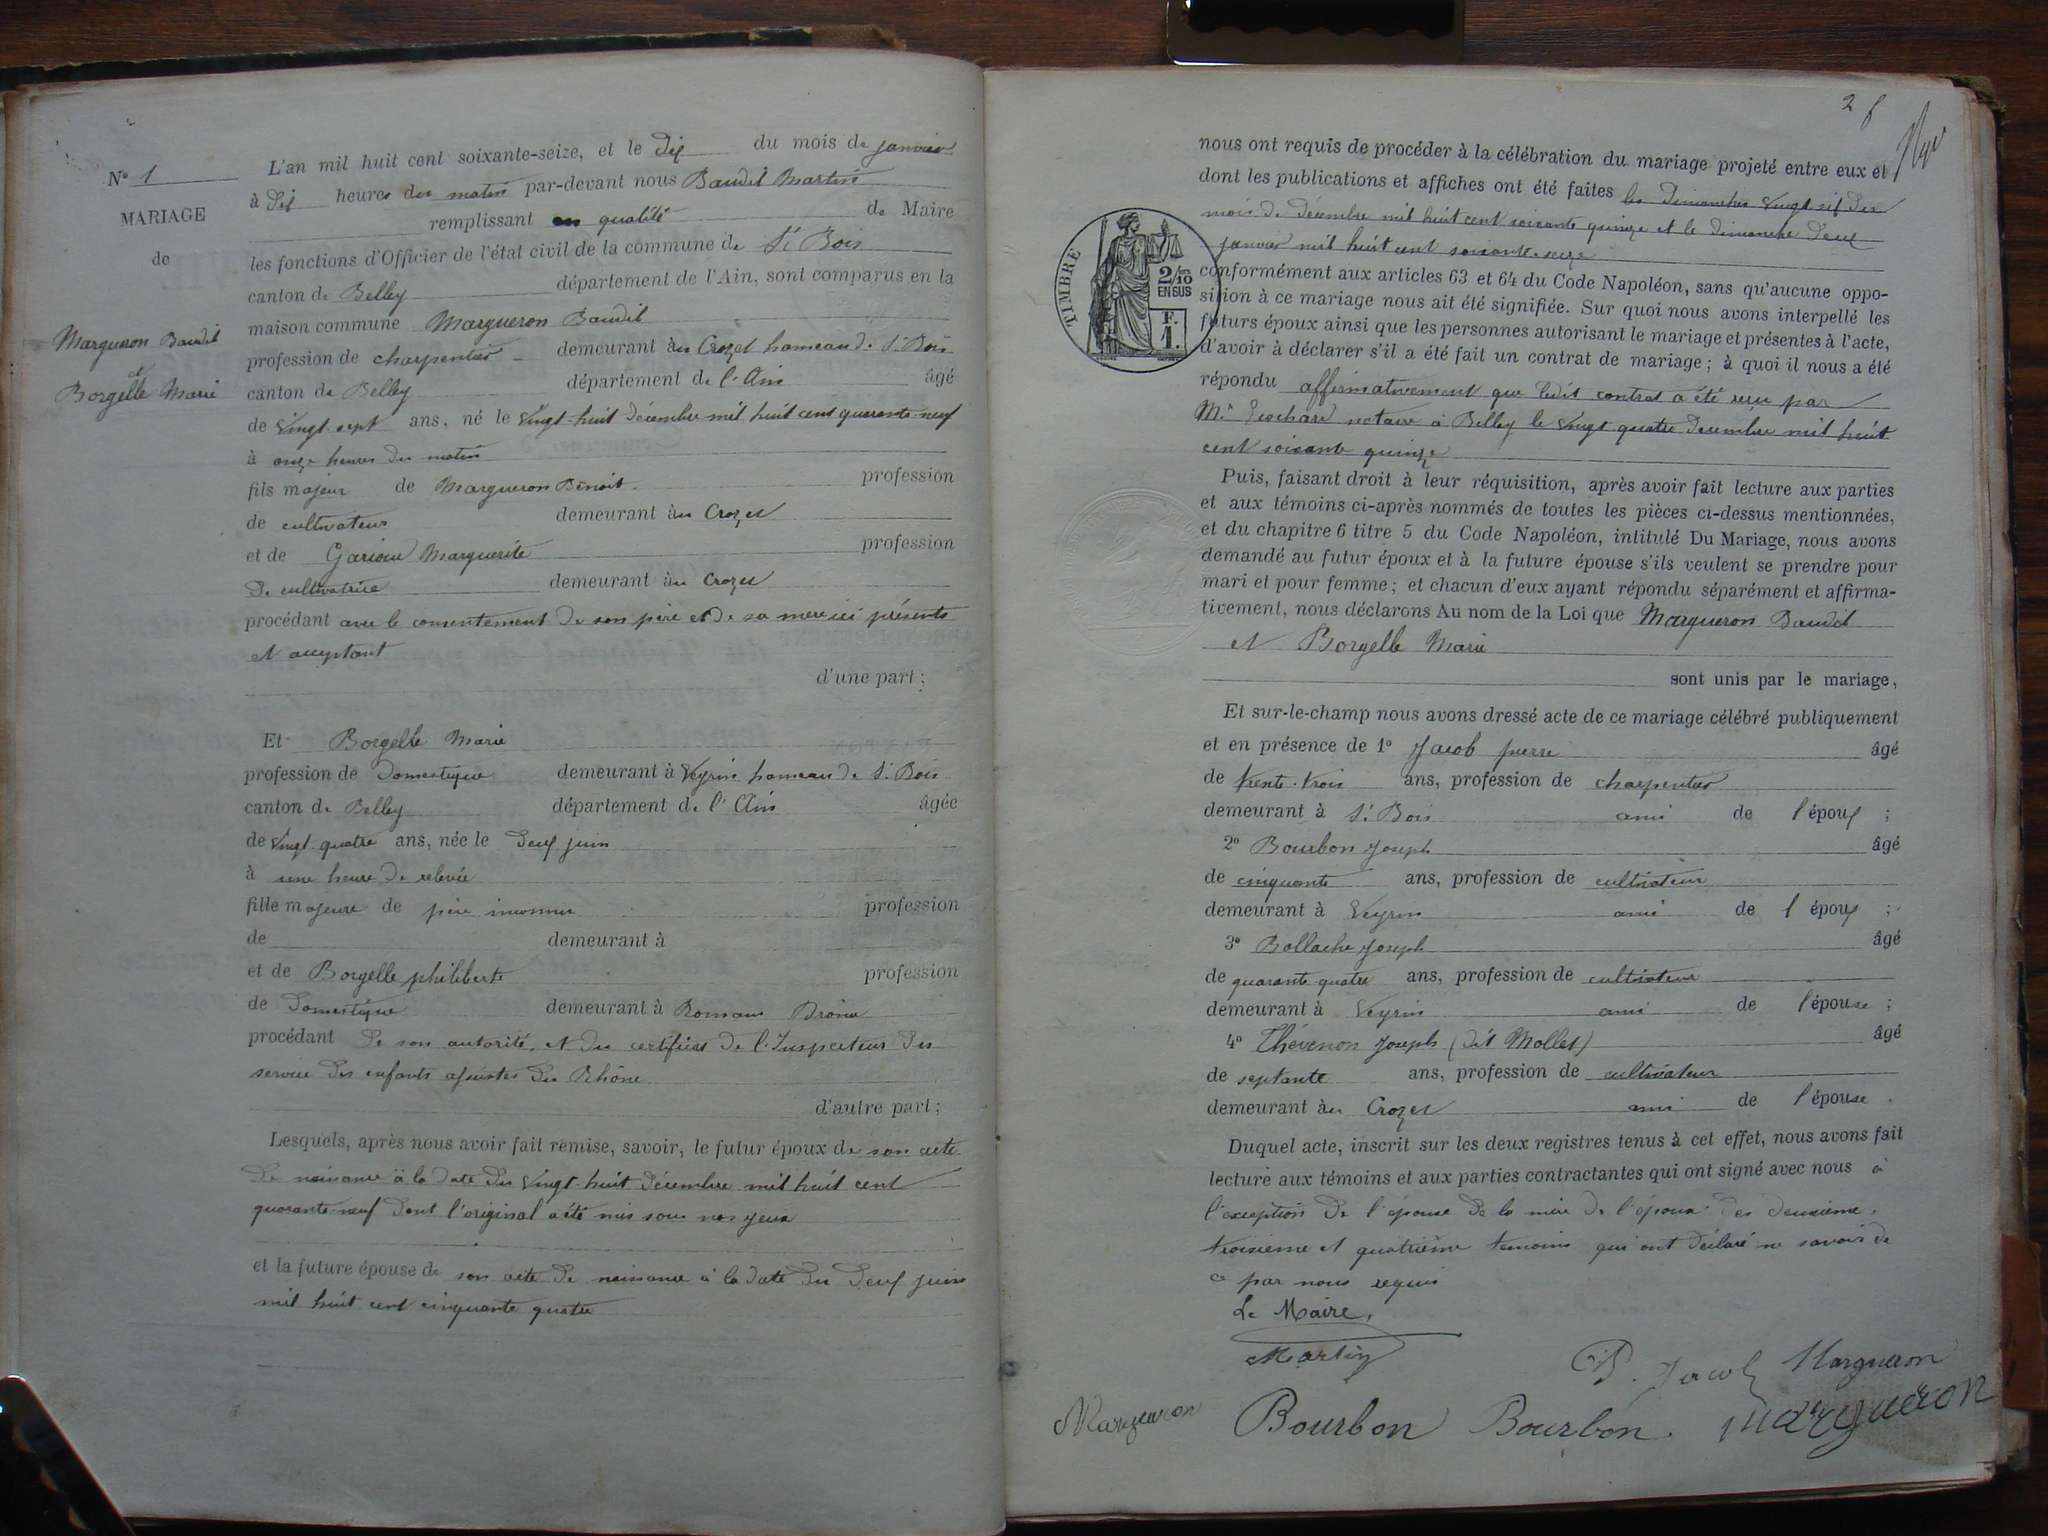 N° 1
MARIAGE
de
Margueron Baudit
et
Borgelle Marie
L'an mil huit cent soixante-seize, et le dix du mois de janvier
à dix heures du matin par-devant nous Baudit Martin
remplissant en qualité de Maire
les fonctions d'Officier de l'état civil de la commune de St Bois
canton de Belley département de l'Ain, sont comparus en la
maison commune Margueron Baudit
profession de charpentier demeurant au Crozet hameau de St Bois
canton de Belley département de l'Ain âgé
de vingt-sept ans, né le vingt-huit décembre mil huit cent quarante-neuf
à onze heures du matin
fils majeur de Margueron Benoit profession
de cultivateur demeurant au Crozet
et de Marguerite profession
de cultivatrice demeurant au Crozet
procédant avec le consentement de son père et de sa mère ici présents
et acceptant
d'une part;
Et Borgelle Marie
profession de Domestique demeurant à Veyrin hameau de St Bois
canton de Belley département de l'Ain âgée
de vingt-quatre ans, née le deux juin
à une heure de relevée
fille majeure de père inconnu profession
de demeurant à
et de Borgelle philiberte profession
de Domestique demeurant à Romans Drôme
procédant de son autorité, et du certificat de l'Inspecteur du
service des enfants assistés du Rhône
d'autre part;
Lesquels, après nous avoir fait remise, savoir, le futur époux de son acte
de naissance à la date du vingt-huit décembre mil huit cent
quarante-neuf dont l'original a été mis sous nos yeux
et la future épouse de son acte de naissance à la date du deux juin
mil huit cent cinquante quatre
2
nous ont requis de procéder à la célébration du mariage projeté entre eux et
dont les publications et affiches ont été faites les Dimanches vingt six du
mois de décembre mil huit cent soixante quinze et le dimanche deux
janvier mil huit cent soixante-seize
TIMBRE
2/10 EN SUS
F. 1.
conformément aux articles 63 et 64 du Code Napoléon, sans qu'aucune oppo-
sition à ce mariage nous ait été signifiée. Sur quoi nous avons interpellé les
futurs époux ainsi que les personnes autorisant le mariage et présentes à l'acte,
d'avoir à déclarer s'il a été fait un contrat de mariage; à quoi il nous a été
répondu affirmativement que ledit contrat a été reçu par
Me notaire à Belley le vingt quatre décembre mil huit
cent soixante quinze
Puis, faisant droit à leur réquisition, après avoir fait lecture aux parties
et aux témoins ci-après nommés de toutes les pièces ci-dessus mentionnées,
et du chapitre 6 titre 5 du Code Napoléon, intitulé Du Mariage, nous avons
demandé au futur époux et à la future épouse s'ils veulent se prendre pour
mari et pour femme; et chacun d'eux ayant répondu séparément et affirma-
tivement, nous déclarons Au nom de la Loi que Margueron Baudit
et Borgelle Marie
sont unis par le mariage,
Et sur-le-champ nous avons dressé acte de ce mariage célébré publiquement
et en présence de 1° Jacob pierre âgé
de trente-trois ans, profession de charpentier
demeurant à St Bois ami de l'époux;
2° Bourbon Joseph âgé
de cinquante ans, profession de cultivateur
demeurant à Veyrin ami de l époux;
3° Bollache Joseph âgé
de quarante quatre ans, profession de cultivateur
demeurant à Veyrin ami de l'épouse;
4° Thévenon Joseph (dit Mollet) âgé
de septante ans, profession de cultivateur
demeurant au Crozet ami de l'épouse.
Duquel acte, inscrit sur les deux registres tenus à cet effet, nous avons fait
lecture aux témoins et aux parties contractantes qui ont signé avec nous à
l'exception de l'épouse de la mère de l'époux des deuxième,
troisième et quatrième témoins qui ont déclaré ne savoir de
ce par nous requis
Le Maire,
Martin
P. Jacob Margueron
Margueron Bourbon Bourbon. Margueron